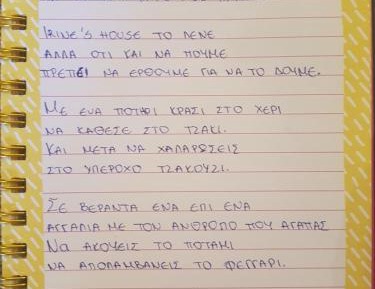 IRINE'S HOUSE ΤΟ ΛΕΝΕ
ΑΛΛΑ ΟΤΙ ΚΑΙ ΝΑ ΠΟΥΜΕ
ΠΡΕΠΕΙ ΝΑ ΕΡΘΟΥΜΕ ΓΙΑ ΝΑ ΤΟ ΔΟΥΜΕ.
ΜΕ ΕΝΑ ΠΟΤΗΡΙ ΚΡΑΣΙ ΣΤΟ ΧΕΡΙ
ΝΑ ΚΑΘΕΣΕ ΣΤΟ ΤΖΑΚΙ.
ΚΑΙ ΜΕΤΑ ΝΑ ΧΑΛΑΡΩΣΕΙΣ
ΣΤΟ ΥΠΕΡΟΧΟ ΤΖΑΚΟΥΖΙ.
ΣΕ ΒΕΡΑΝΤΑ ΕΝΑ ΕΠΙ ΕΝΑ
ΑΓΓΑΛΙΑ ΜΕ ΤΟΝ ΑΝΘΡΟΠΟ ΠΟΥ ΑΓΑΠΑΣ
ΝΑ ΑΚΟΥΕΙΣ ΤΟ ΠΟΤΑΜΙ
ΝΑ ΑΠΟΛΑΜΒΑΝΕΙΣ ΤΟ ΦΕΓΓΑΡΙ.